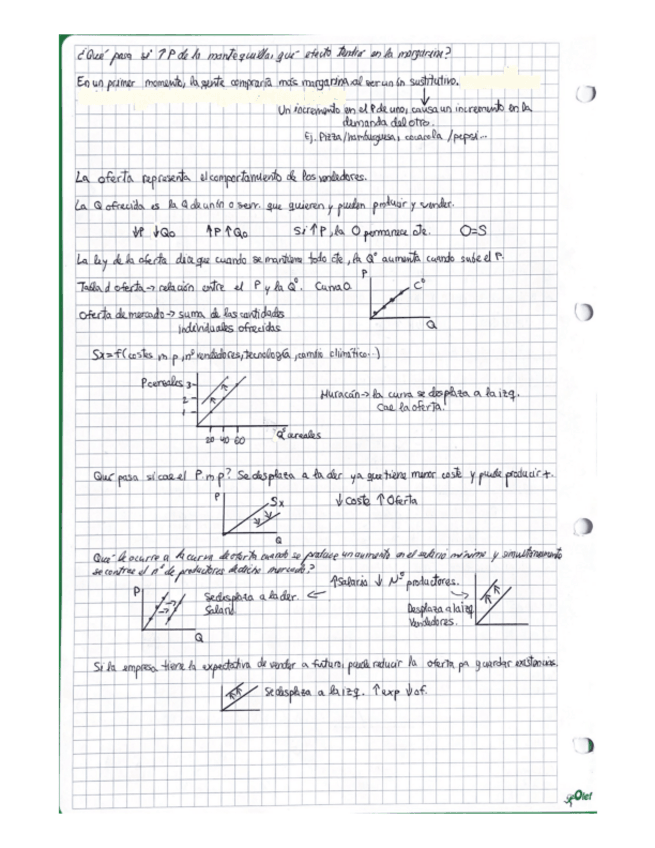 ¿Qué pasa si ↑P de la mantequilla, qué efecto tendrá en la margarina?
En un primer momento, la gente compraría más margarina al ser un bn sustitutivo.
Un incremento en el P de uno, causa un incremento en la
demanda del otro.
Ej. Pizza/hamburguesa, cocacola/pepsi...
La oferta representa el comportamiento de los vendedores.
La Q ofrecida es la Q de un bn o serv. que quieren y pueden producir y vender.
↓P ↓Qo ↑P ↑Qo Si ↑P, la O permanece cte. O=S
La ley de la oferta dice que cuando se mantiene todo cte, la Qº aumenta cuando sube el P.
Tabla d oferta → relación entre el P y la Qº. Curva O
P
Cº
Q
Oferta de mercado → suma de las cantidades
individuales ofrecidas
Sx = f (costes, m p, nº vendedores, tecnología, cambio climático...)
P cereales 3
2
1
20 40 60
Qº cereales
Huracán → la curva se desplaza a la izq.
Cae la oferta.
Qué pasa si cae el P m p? Se desplaza a la der ya que tiene menor coste y puede producir +.
P
Sx
Q
↓ Coste ↑ Oferta
Qué le ocurre a la curva de oferta cuando se produce un aumento en el salario mínimo y simultáneamente
se contrae el nº de productores de dicho mercado?
↑ Salario ↓ Nº productores.
P
Q
Se desplaza a la der.
Salario
Desplaza a la izq
Vendedores.
Si la empresa tiene la expectativa de vender a futuro, puede reducir la oferta pa guardar existencias.
Se desplaza a la izq. ↑ exp ↓ of.